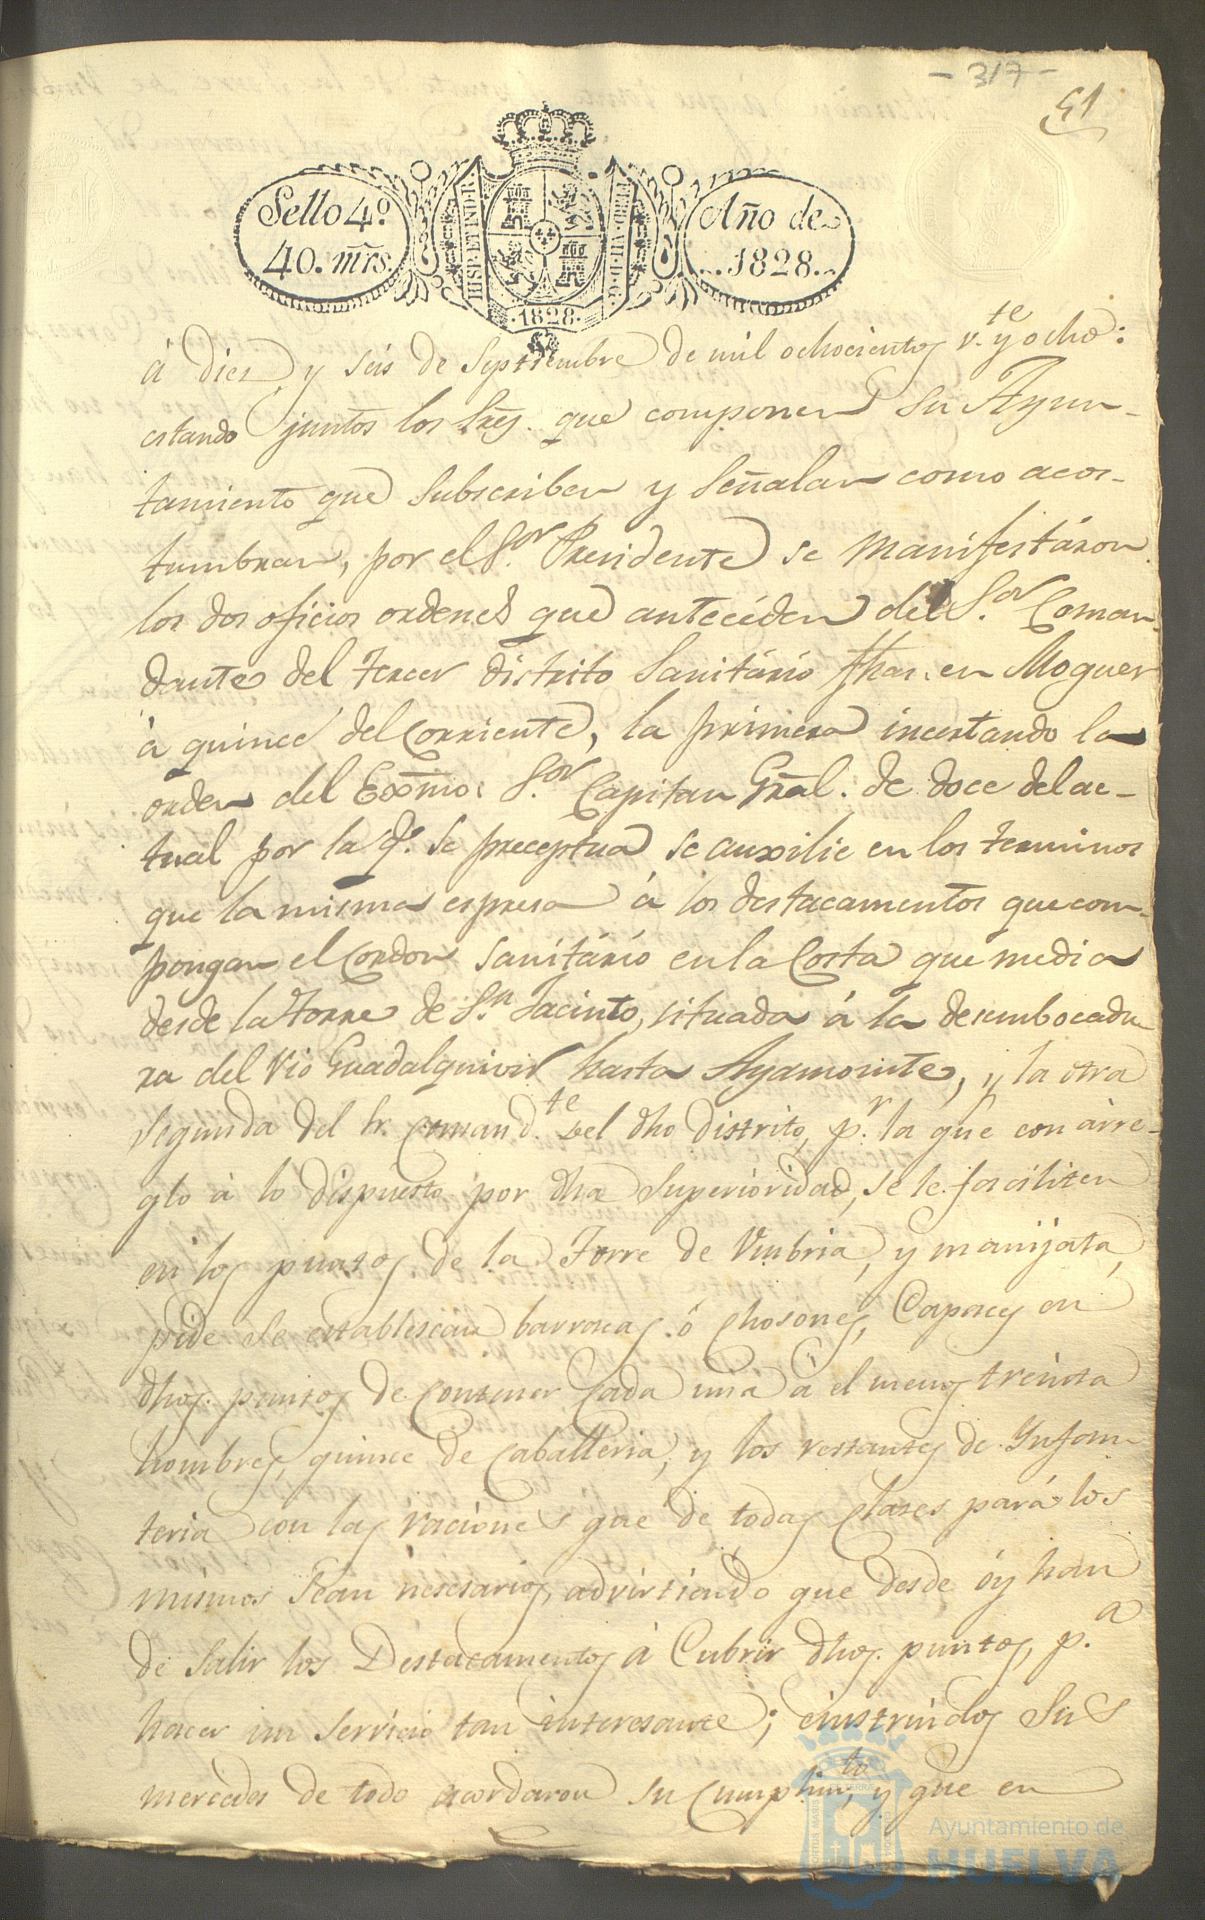 - 317 -
51
Sello 4º
40. mr̃s.
HISP. ET IND. R.
1828.
Año de
1828.
á dies y seis de Septiembre de mil ochocientos v.te y ocho:
estando juntos los Sres. que componen su Ayun-
tamiento que subscriben y señalan como acos-
tumbran, por el S.or Presidente se manifestáron
los dos oficios ordenes que antecéden del S.or Coman-
dante del tercer distrito Sanitário fhas. en Moguer
á quince del Corriente, la primera incertando la
orden del Exmo. S.or Capitan Gral. de doce del ac-
tual por la q.e se preceptua se auxilie en los terminos
que la misma espresa á los destacamentos que com-
pongan el Cordon sanitário en la Costa que media
desde la torre de S.n Jacinto, situada á la desembocadu-
ra del Rio Guadalquivir hasta Ayamonte, y la otra
segunda del Sr. Comand.te del dho distrito, p.r la que con arre-
glo á lo dispuesto por dha Superioridad, se le fasciliten
en los puntos de la Torre de Umbria, y manijata,
pide se establescan barracas ó chosones, Capaces en
dhos. puntos de contener Cada una á el menos treinta
hombres, quince de Caballeria, y los restantes de Infan-
teria con las raciones que de todas Clases pará los
mismos sean nesesarios, advirtiendo que desde óy han
de salir los Destacamentos á Cubrir dhos. puntos, p.a
hacer un servicio tan interesante; einstruidos Sus
mercedes de todo acordaron su Cumplim.to, y que en
Ayuntamiento de
HUELVA